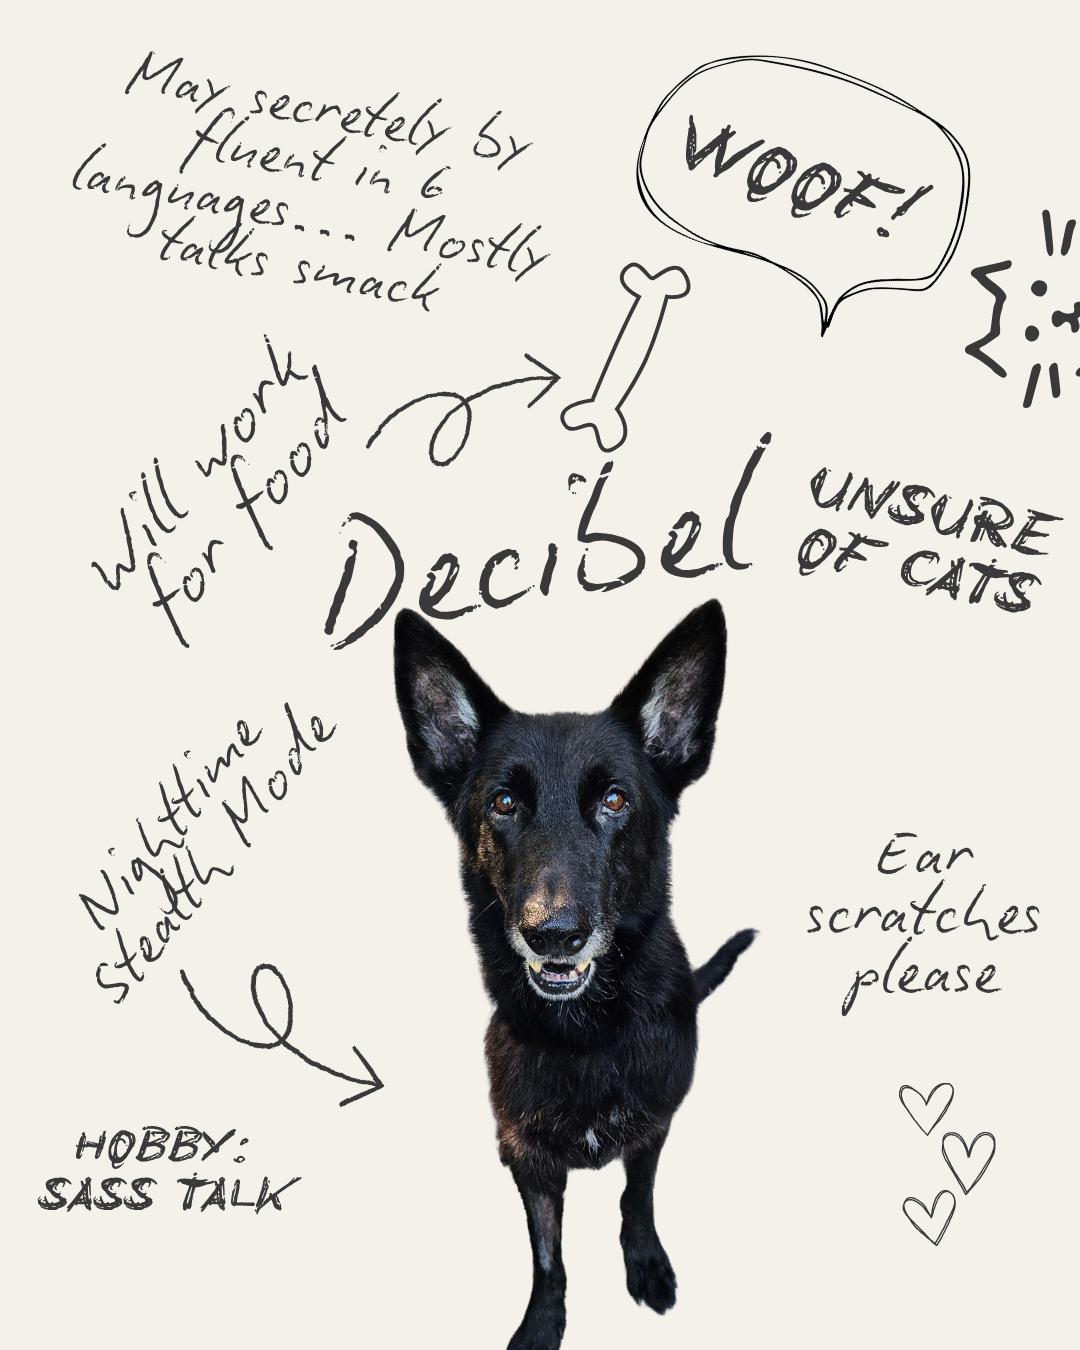 May secretely by
fluent in 6
languages... Mostly
talks smack
WOOF!
Will work
for food
Decibel
UNSURE
OF CATS
Nighttime
Stealth Mode
Ear
scratches
please
HOBBY:
SASS TALK